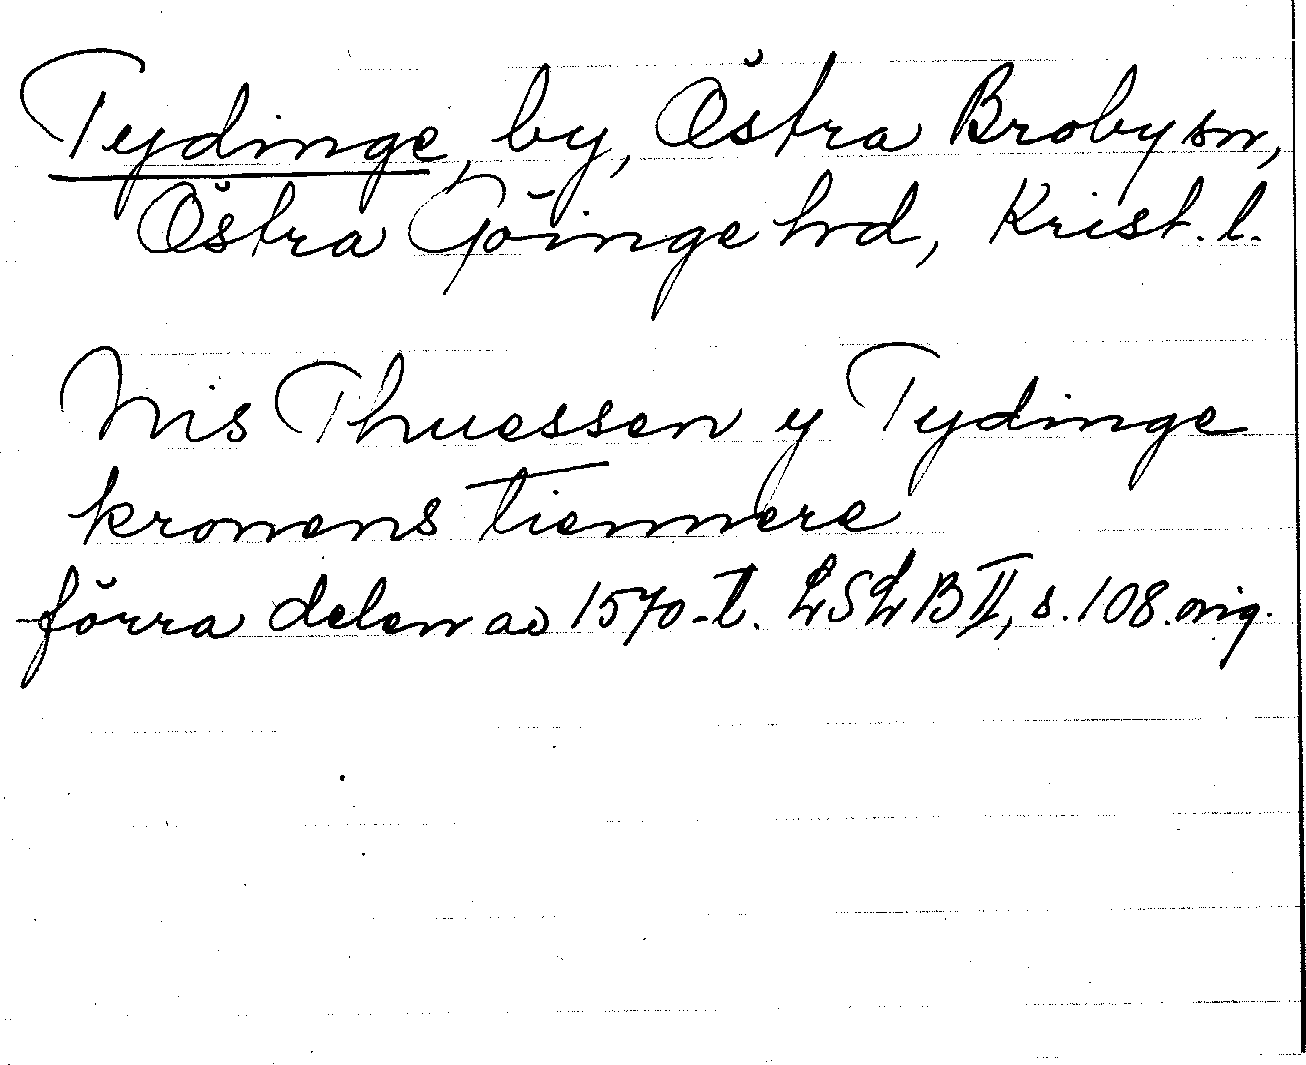 Tydinge, by, Östra Broby sn,
Östra Göinge hrd, Krist. l.
Nis Thuessen y Tydinge
kronens tiennere
förra delen av 1570-t. LSLB II, s. 108. orig.